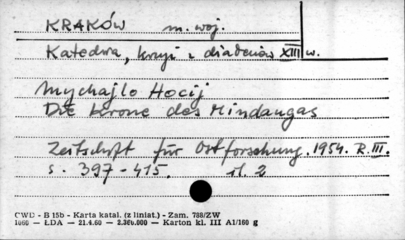 KRAKÓW m. woj.
Katedra, kraje i diadenów XIII w.
Mychajlo Hocij
Die Krone des Mindaugas
Zeitschrift für Ostforschung. 1954. R. III.
s. 397-415. il. 2
CWD - B 15b - Karta katal. (z liniat.) - Zam. 788/ZW
1960 — ŁDA — 21.4.60 — 2.300.000 — Karton kl. III A1/160 g